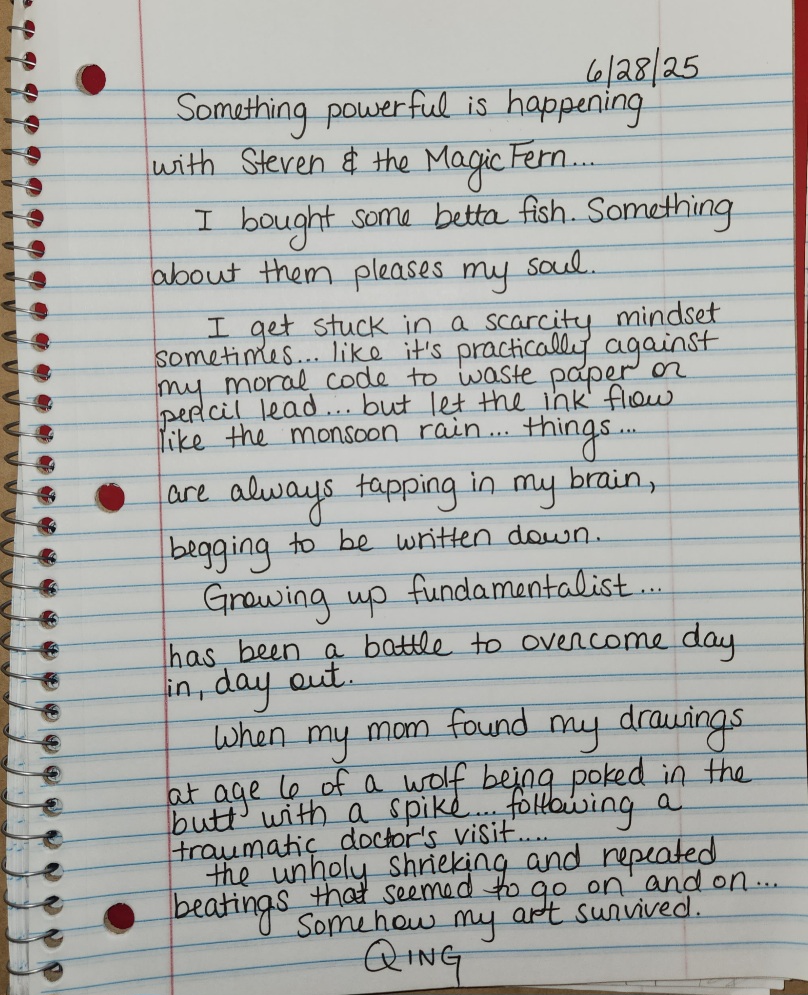 6/28/25
Something powerful is happening
with Steven & the Magic Fern...
I bought some betta fish. Something
about them pleases my soul.
I get stuck in a scarcity mindset
sometimes... like it's practically against
my moral code to waste paper or
pencil lead... but let the ink flow
like the monsoon rain... things...
are always tapping in my brain,
begging to be written down.
Growing up fundamentalist...
has been a battle to overcome day
in, day out.
When my mom found my drawings
at age 6 of a wolf being poked in the
butt with a spike... following a
traumatic doctor's visit....
the unholy shrieking and repeated
beatings that seemed to go on and on...
Somehow my art survived.
QING